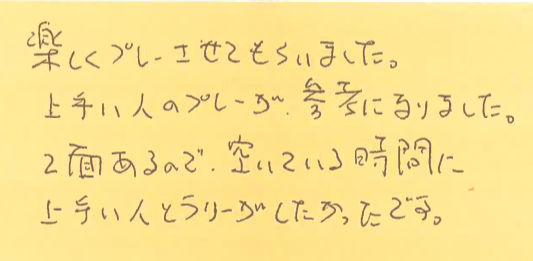 楽しくプレーさせてもらいました。
上手い人のプレーが、参考になりました。
2面あるので、空いている時間に
上手い人とラリーがしたかったです。